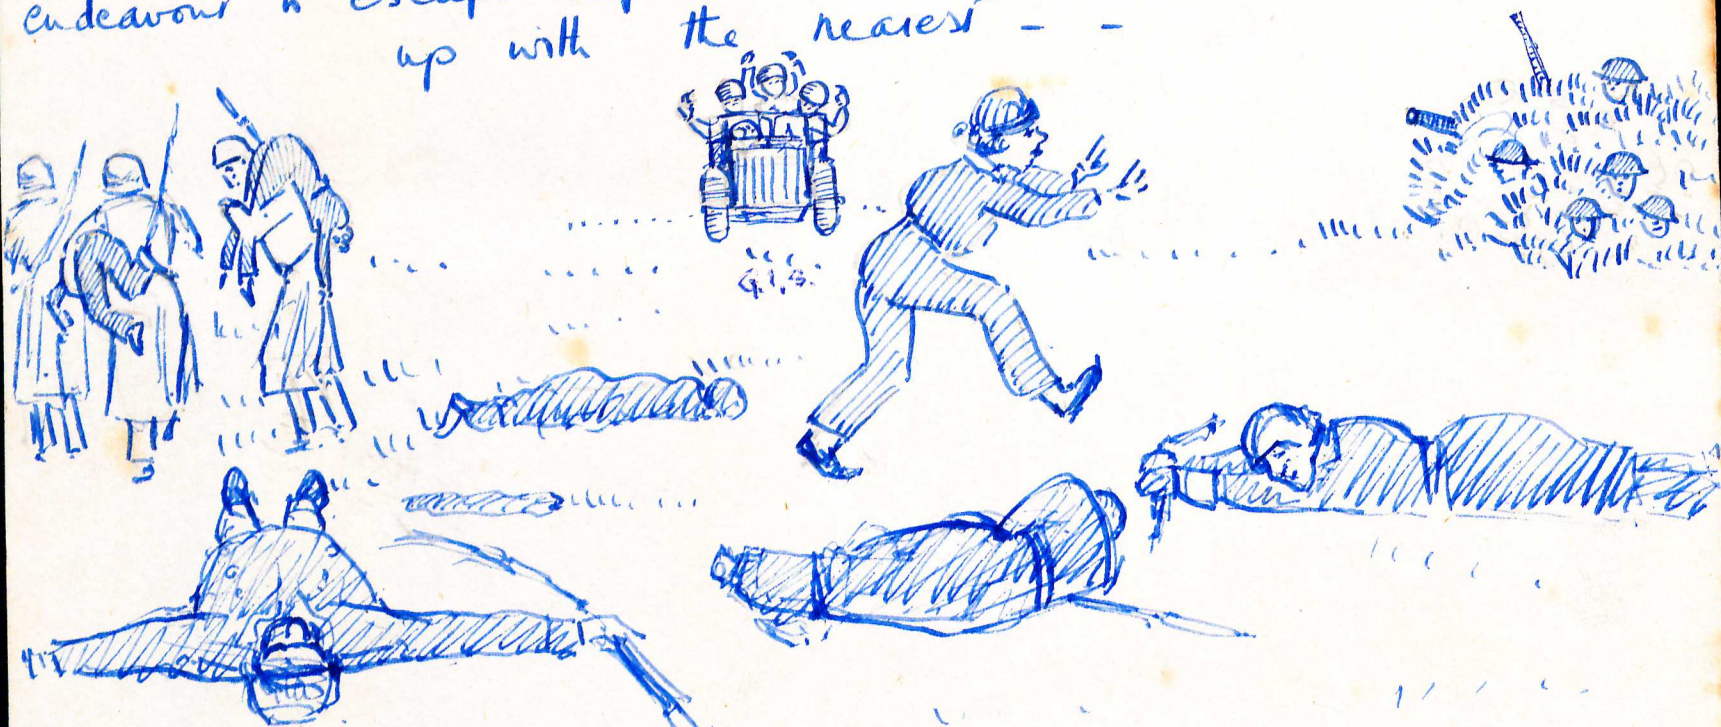 endeavour to escape
up with the nearest - -
G.I.S.